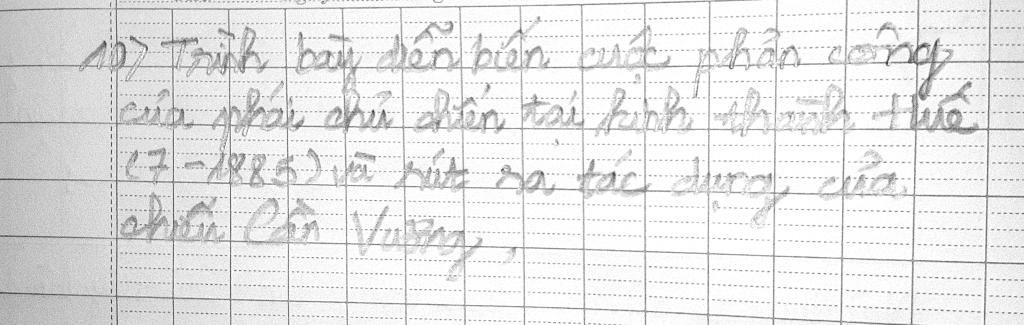 10) Trình bày diễn biến cuộc phản công
của phái chủ chiến tại kinh thành Huế
(7-1885) và rút ra tác dụng của
chiếu Cần Vương.